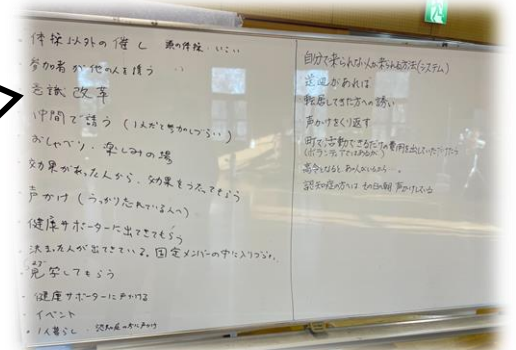 ・体操以外の催し 頭の体操・いこい
・参加者が他の人を誘う
・意識改革
・仲間で誘う（1人だと参加しづらい）
・おしゃべり、楽しみの場
・効果があった人から、効果をうたってもらう
・声かけ（うっかり忘れている人へ）
・健康サポーターに出てきてもらう
・決まった人が出てきている。固定メンバーの中に入りづらい
・まず見学してもらう
・健康サポーターに声かける
・イベント
・1人暮らし、認知症の方に声かけ
自分で来られない人が来られる方法（システム）
送迎があれば
転居してきた方への誘い
声かけをくり返す
町で活動できるだけの費用を出していただいて
(ボランティアではあるが)
認知症の方には その日の朝 声かけしている